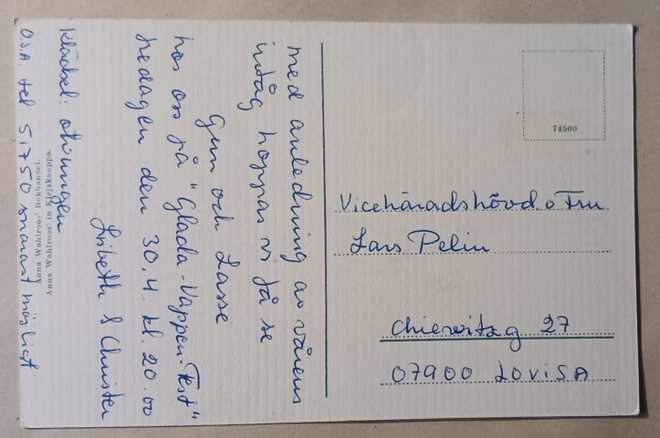 med anledning av vårens
intåg hoppas vi få se
Gun och Lasse
hos oss på "Glada-Vappen-Fest"
fredagen den 30.4. kl. 20.00
Lisbeth & Christer
Klädsel: otvungen
O.S.A. tel 51750 snarast möjligt
Anna Wahlroos' Bokhandel.
Anna Wahlroos'in Kirjakauppa.
74500
Vicehäradshövd. o Fru
Lars Pelin
Chiewitzg 27
07900 LOVISA